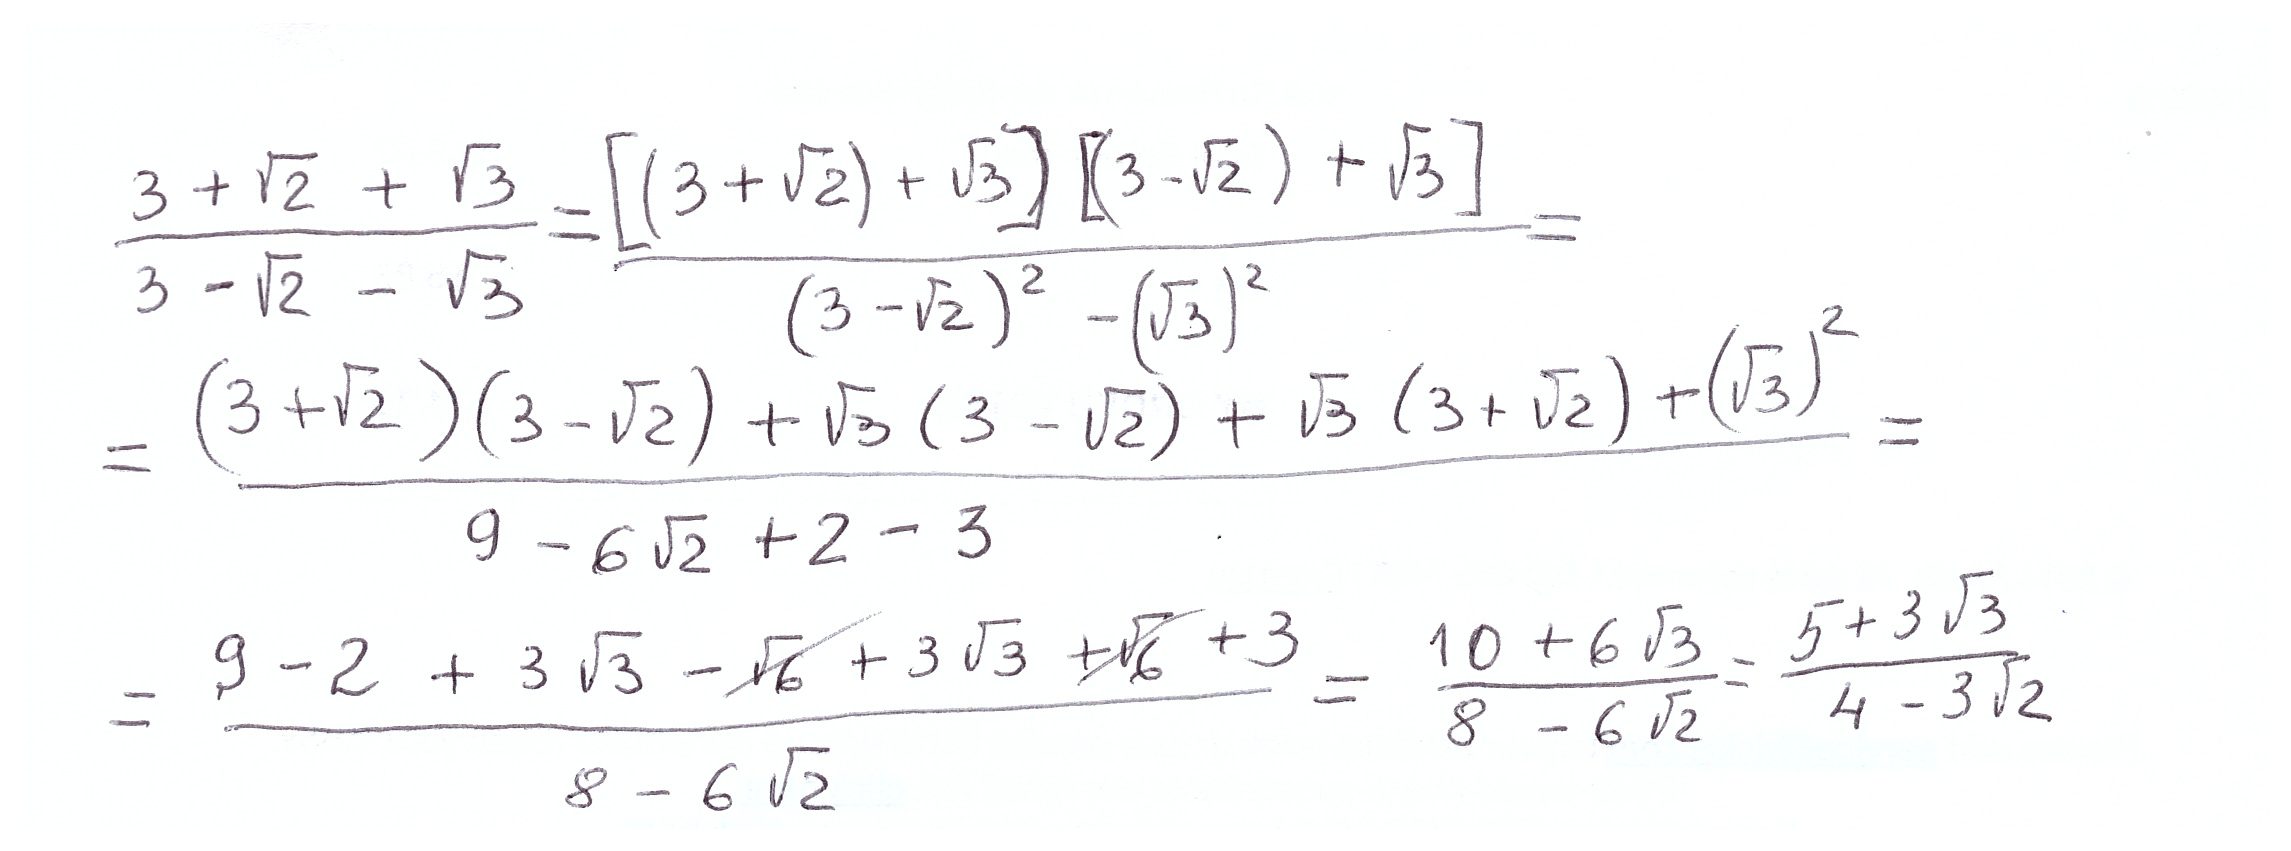 (3 + √2 + √3)/(3 - √2 - √3) = [(3 + √2) + √3] [(3 - √2) + √3]/((3 - √2)² - (√3)²) =
= ((3 + √2)(3 - √2) + √3 (3 - √2) + √3 (3 + √2) + (√3)²)/(9 - 6√2 + 2 - 3) =
= (9 - 2 + 3√3 - √6 + 3√3 + √6 + 3)/(8 - 6√2) = (10 + 6√3)/(8 - 6√2) = (5 + 3√3)/(4 - 3√2)